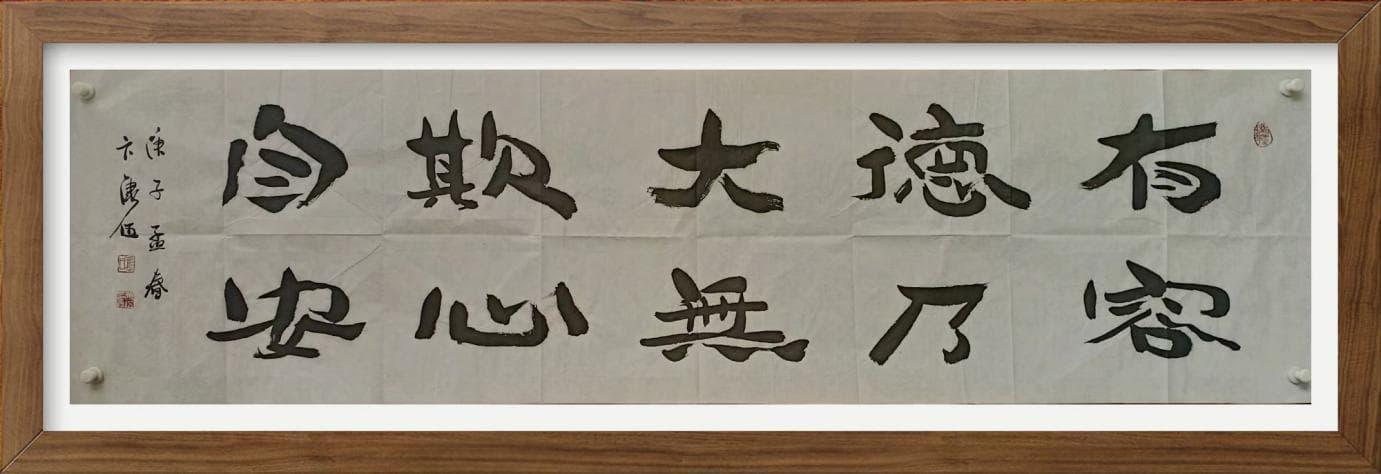 有容
德乃
大無
欺心
自安
庚子孟春